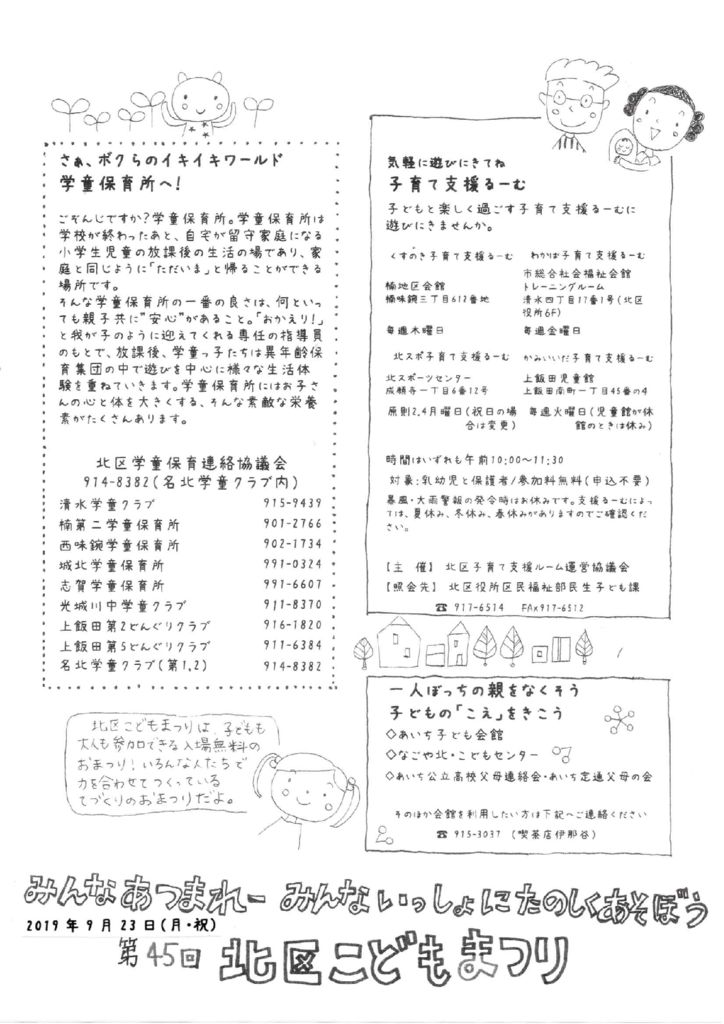 さぁ、ボクらのイキイキワールド
学童保育所へ!
ごぞんじですか?学童保育所。学童保育所は
学校が終わったあと、自宅が留守家庭になる
小学生児童の放課後の生活の場であり、家
庭と同じように「ただいま」と帰ることができる
場所です。
そんな学童保育所の一番の良さは、何といっ
ても親子共に"安心"があること。「おかえり!」
と我が子のように迎えてくれる専任の指導員
のもとで、放課後、学童っ子たちは異年齢保
育集団の中で遊びを中心に様々な生活体
験を重ねていきます。学童保育所にはお子さ
んの心と体を大きくする、そんな素敵な栄養
素がたくさんあります。
北区学童保育連絡協議会
914-8382(名北学童クラブ内)
清水学童クラブ 915-9439
楠第二学童保育所 901-2766
西味鋺学童保育所 902-1734
城北学童保育所 991-0324
志賀学童保育所 991-6607
光城川中学童クラブ 911-8370
上飯田第2どんぐりクラブ 916-1820
上飯田第5どんぐりクラブ 911-6384
名北学童クラブ(第1,2) 914-8382
北区こどもまつりは、子どもも
大人も参加できる入場無料の
おまつり!いろんな人たちで
力を合わせてつくっている
てづくりのおまつりだよ。
気軽に遊びにきてね
子育て支援るーむ
子どもと楽しく過ごす子育て支援るーむに
遊びにきませんか。
くすのき子育て支援るーむ
楠地区会館
楠味鋺三丁目612番地
毎週木曜日
わかば子育て支援るーむ
市総合社会福祉会館
トレーニングルーム
清水四丁目17番1号(北区
役所6F)
毎週金曜日
北スポ子育て支援るーむ
北スポーツセンター
成願寺一丁目6番12号
原則2,4月曜日(祝日の場
合は変更)
かみいいだ子育て支援るーむ
上飯田児童館
上飯田南町一丁目45番の4
毎週火曜日(児童館が休
館のときは休み)
時間はいずれも午前10:00~11:30
対象:乳幼児と保護者/参加料無料(申込不要)
暴風・大雨警報の発令時はお休みです。支援るーむによっ
ては、夏休み、冬休み、春休みがありますのでご確認くだ
さい。
【主 催】 北区子育て支援ルーム運営協議会
【照会先】 北区役所区民福祉部民生子ども課
☎ 917-6514 FAX917-6512
一人ぼっちの親をなくそう
子どもの「こえ」をきこう
◇あいち子ども会館
◇なごや北・こどもセンター
◇あいち公立高校父母連絡会・あいち定通父母の会
そのほか会館を利用したい方は下記へご連絡ください
☎ 915-3037 (喫茶店伊那谷)
みんなあつまれー みんないっしょにたのしくあそぼう
2019年9月23日(月・祝)
第45回 北区こどもまつり